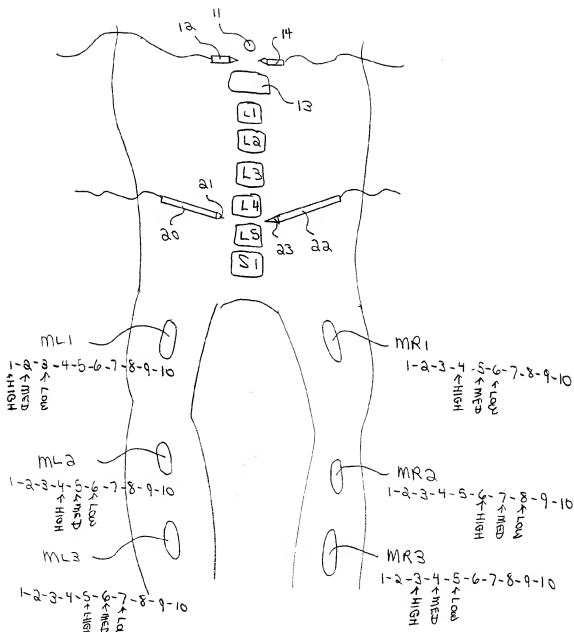 11
12
14
13
L1
L2
L3
21
L4
20
23
22
L5
S1
ML1
1-2-3-4-5-6-7-8-9-10
HIGH
MED
LOW
MR1
1-2-3-4-5-6-7-8-9-10
HIGH
MED
LOW
ML2
1-2-3-4-5-6-7-8-9-10
HIGH
MED
LOW
MR2
1-2-3-4-5-6-7-8-9-10
HIGH
MED
LOW
ML3
1-2-3-4-5-6-7-8-9-10
HIGH
MED
LOW
MR3
1-2-3-4-5-6-7-8-9-10
HIGH
MED
LOW